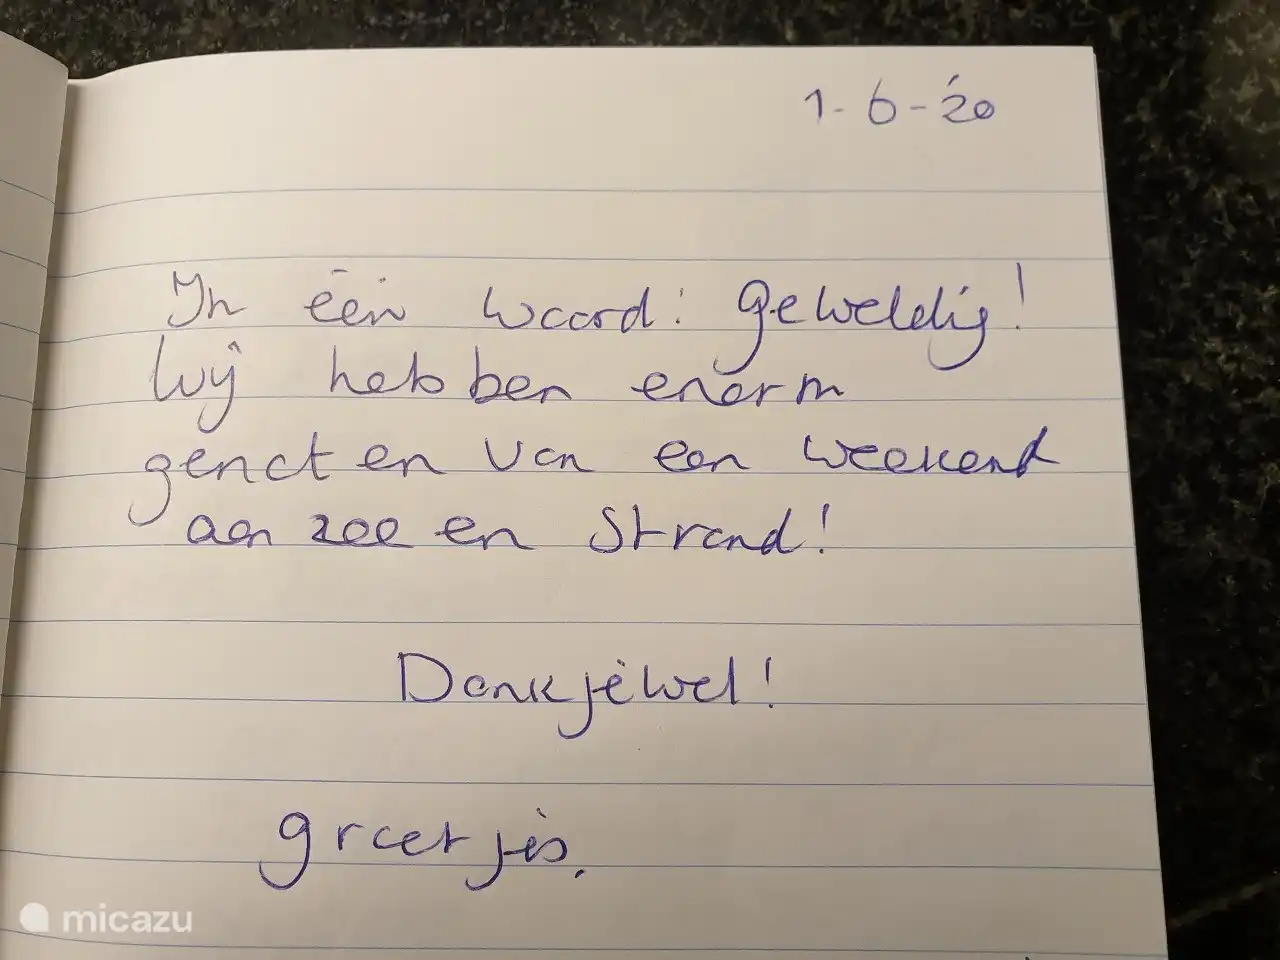 1-6-20
In één woord: geweldig!
Wij hebben enorm
genoten van een weekend
aan zee en strand!
Dankjewel!
groetjes,
micazu